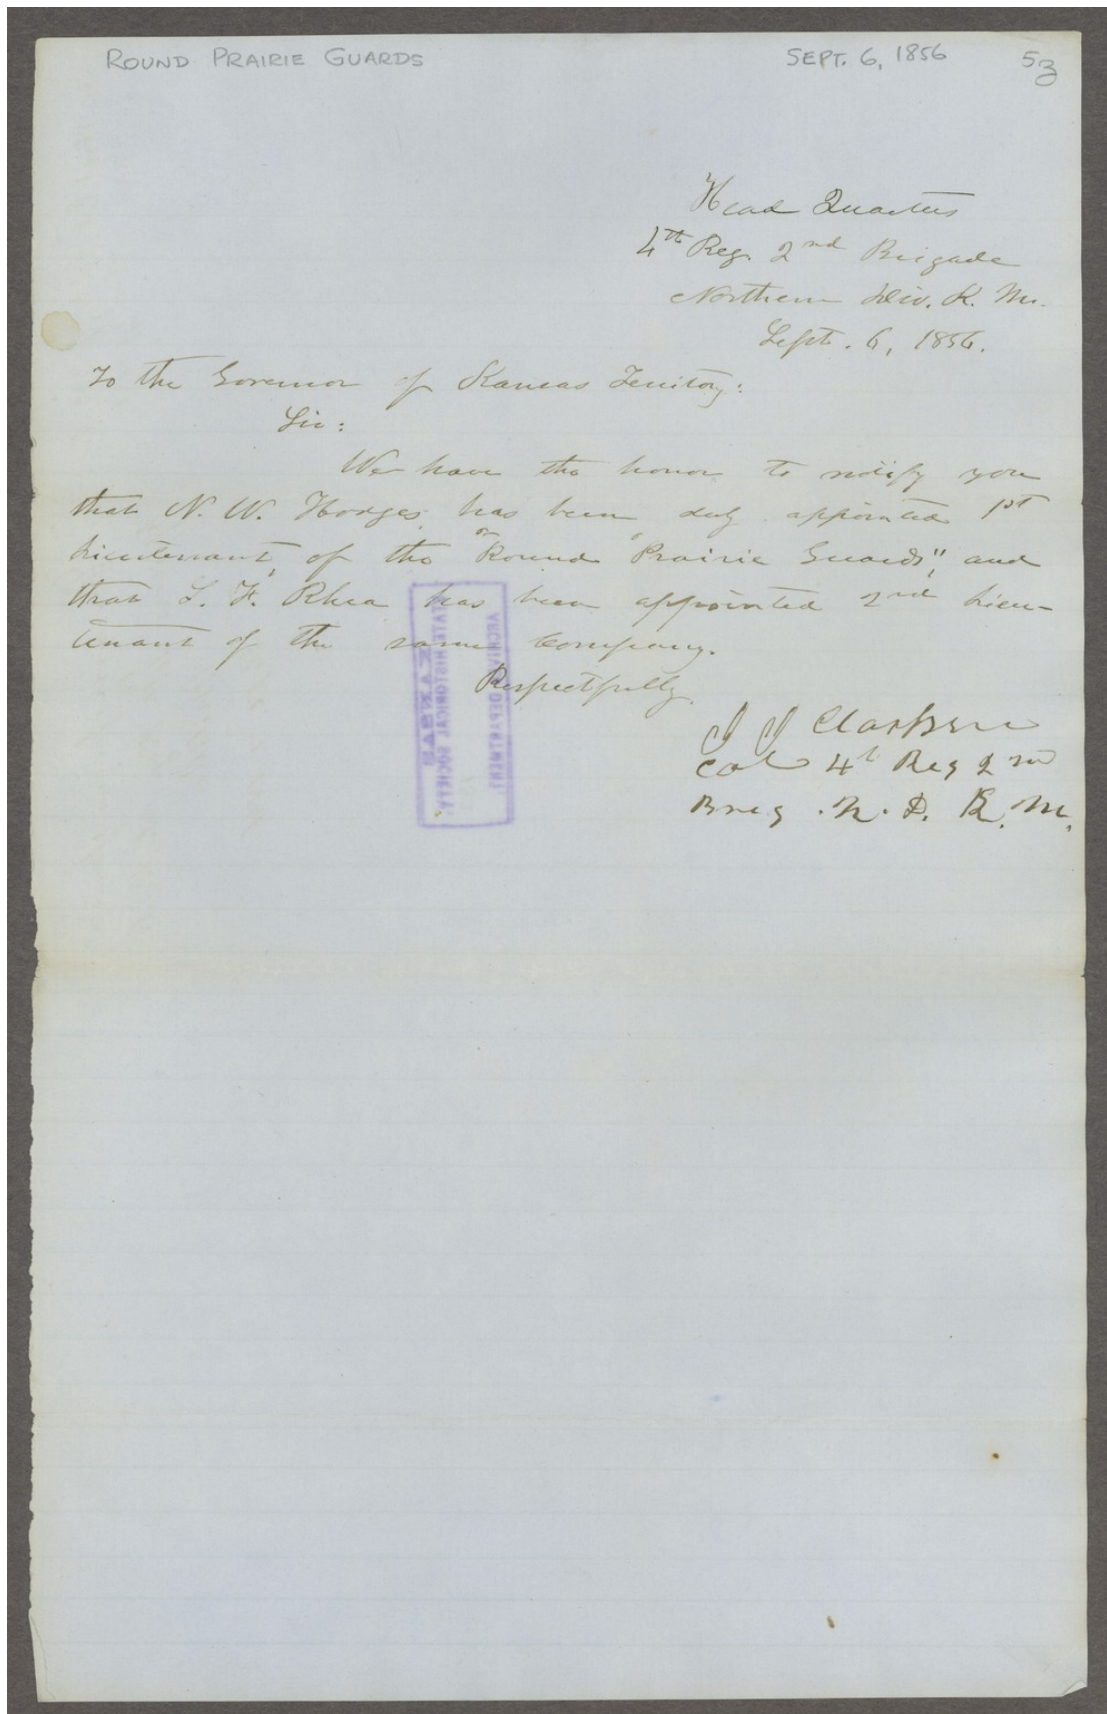 ROUND PRAIRIE GUARDS SEPT. 6, 1856 53
Head Quarters
4th Reg. 2nd Brigade
Northern Div. K. M.
Sept. 6, 1856.
To the Governor of Kansas Territory:
Sir:
We have the honor to notify you
that N. W. Hodges has been duly appointed 1st
Lieutenant, of the "Round "Prairie Guards", and
that L. F. Rhea has been appointed 2nd Lieu-
tenant of the same Company.
Respectfully
J J Clarkson
Col 4th Reg 2nd
Brig. N. D. K. M.
ARCHIVES DEPARTMENT
STATE HISTORICAL SOCIETY
KANSAS